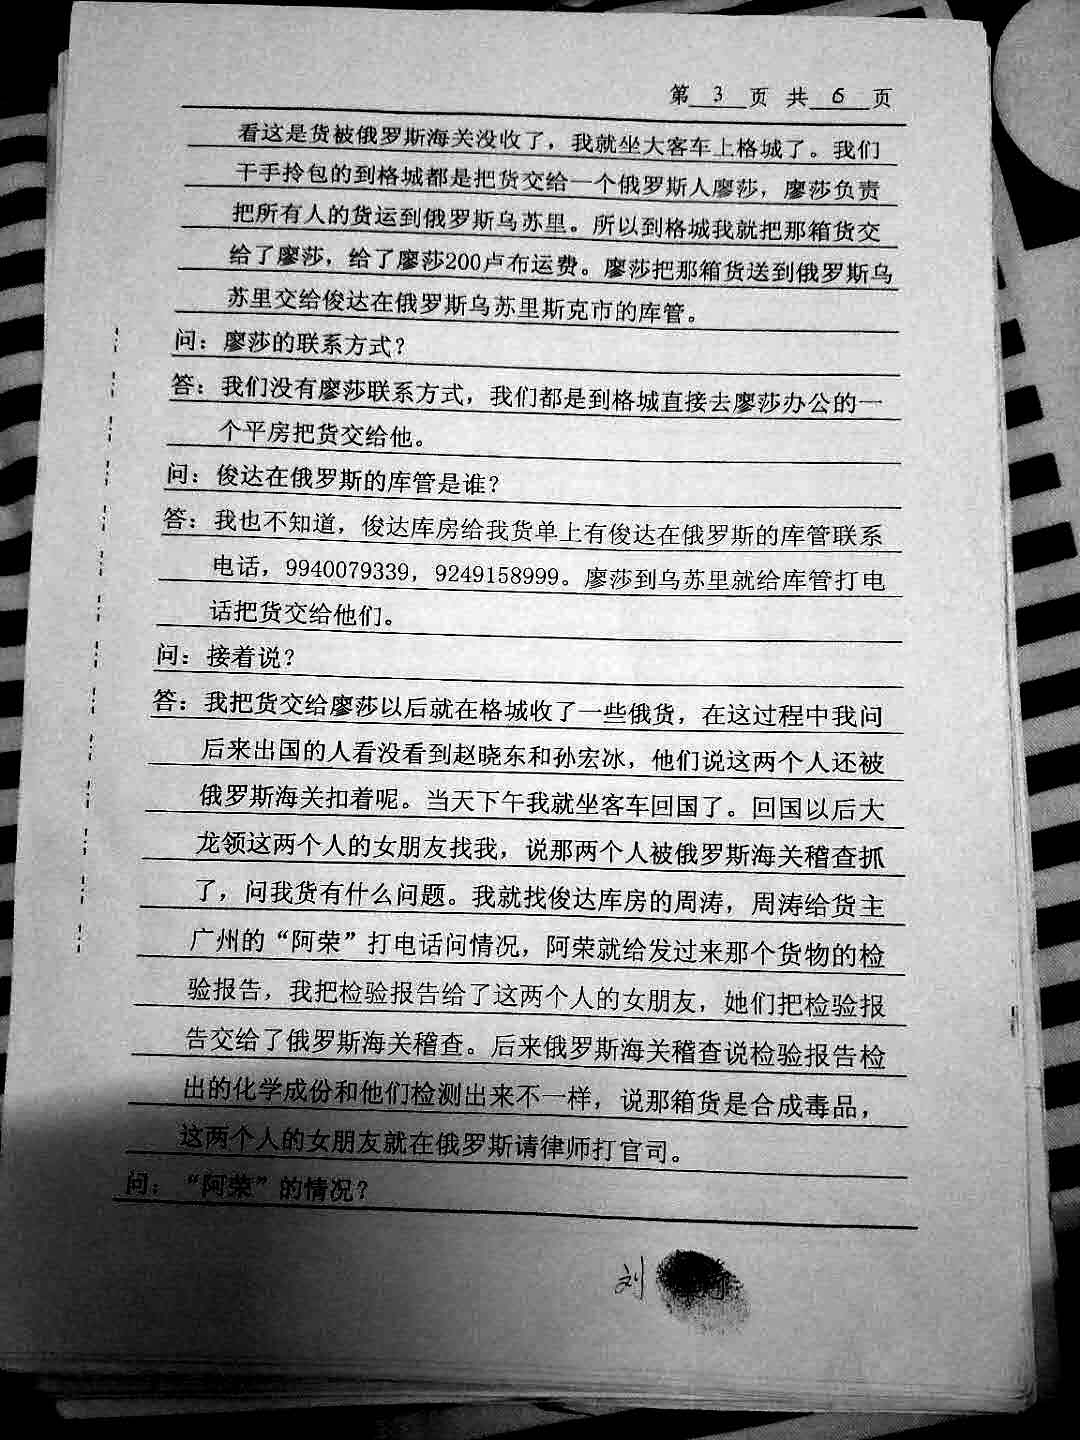 第 3 页 共 6 页
看这是货被俄罗斯海关没收了，我就坐大客车上格城了。我们
干手拎包的到格城都是把货交给一个俄罗斯人廖莎，廖莎负责
把所有人的货运到俄罗斯乌苏里。所以到格城我就把那箱货交
给了廖莎，给了廖莎200卢布运费。廖莎把那箱货送到俄罗斯乌
苏里交给俊达在俄罗斯乌苏里斯克市的库管。
问：廖莎的联系方式？
答：我们没有廖莎联系方式，我们都是到格城直接去廖莎办公的一
个平房把货交给他。
问：俊达在俄罗斯的库管是谁？
答：我也不知道，俊达库房给我货单上有俊达在俄罗斯的库管联系
电话，9940079339，9249158999。廖莎到乌苏里就给库管打电
话把货交给他们。
问：接着说？
答：我把货交给廖莎以后就在格城收了一些俄货，在这过程中我问
后来出国的人看没看到赵晓东和孙宏冰，他们说这两个人还被
俄罗斯海关扣着呢。当天下午我就坐客车回国了。回国以后大
龙领这两个人的女朋友找我，说那两个人被俄罗斯海关稽查抓
了，问我货有什么问题。我就找俊达库房的周涛，周涛给货主
广州的“阿荣”打电话问情况，阿荣就给发过来那个货物的检
验报告，我把检验报告给了这两个人的女朋友，她们把检验报
告交给了俄罗斯海关稽查。后来俄罗斯海关稽查说检验报告检
出的化学成份和他们检测出来不一样，说那箱货是合成毒品，
这两个人的女朋友就在俄罗斯请律师打官司。
问：“阿荣”的情况？
刘